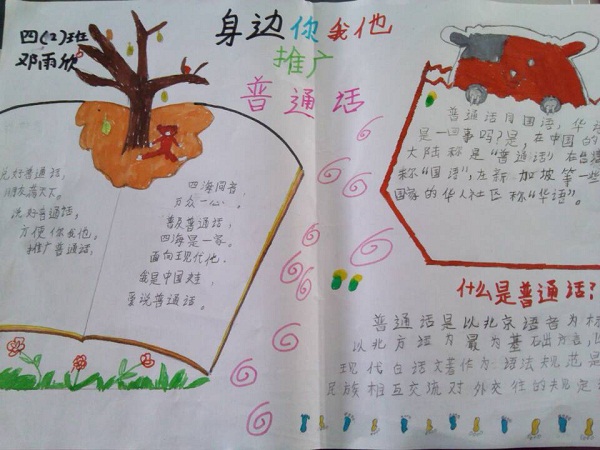 四(2)班
邓雨欣
身边你我他
推广
普通话
说好普通话,
朋友满天下。
说好普通话,
方便你我他。
推广普通话,
四海同音,
万众一心。
普及普通话,
四海是一家。
面向现代化
我是中国娃,
爱说普通话。
普通话月国语,华语
是一回事吗?是,在中国的
大陆称是“普通话”在台湾
称“国语”,在新加坡等一些
国家的华人社区称“华语”。
什么是普通话?
普通话是以北京语音为标
以北方话为最为基础方言,以
现代白话文著作为语法规范是
民族相互交流对外交往的规定